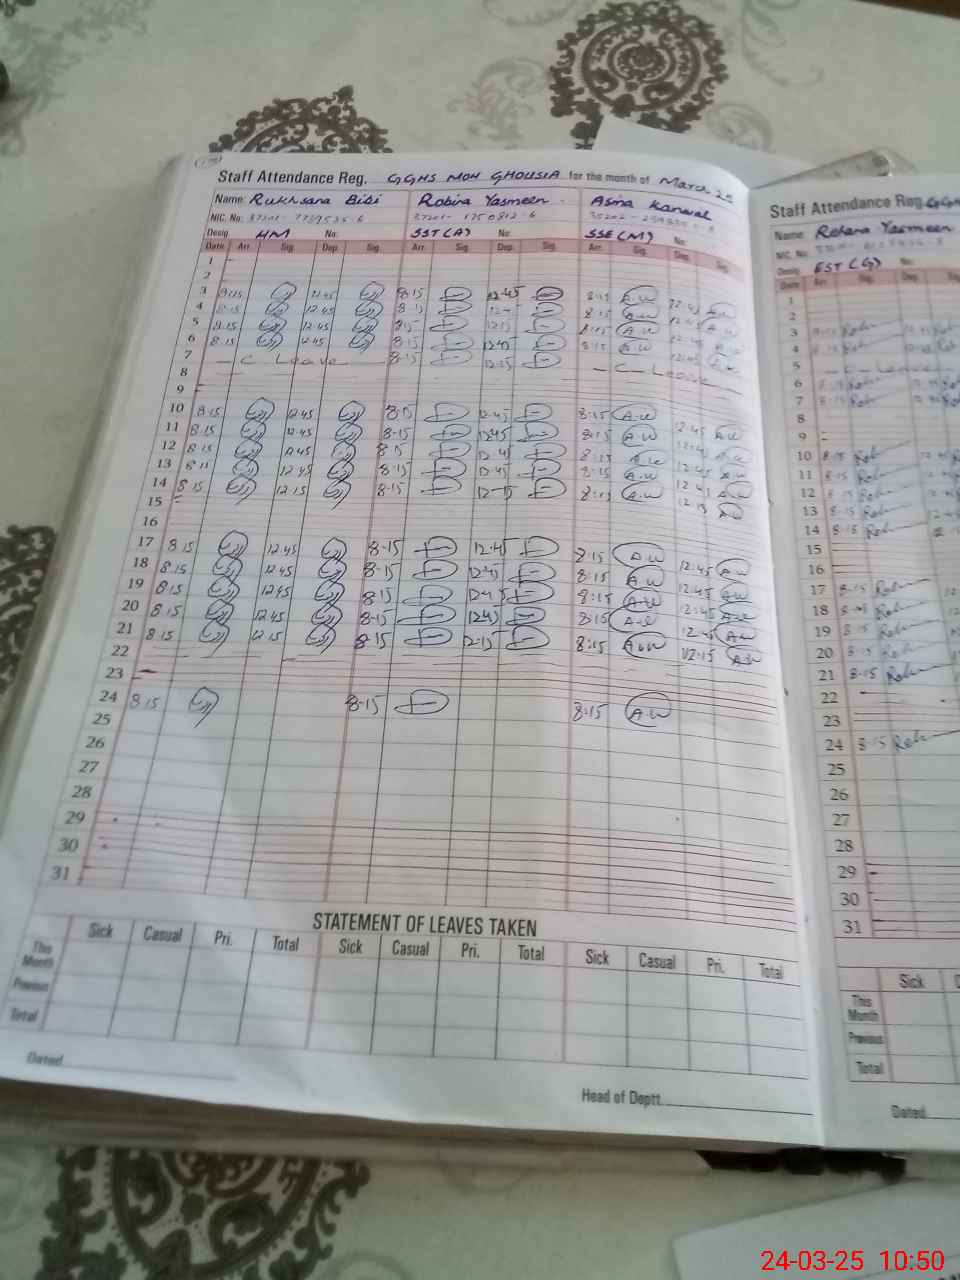 Staff Attendance Reg. GGHS MOH GHOUSIA for the month of March 25
Name: Rukhsana Bibi Robina Yasmeen Asma Kanwal
NIC. No:
Desig. HM No: SST (A) No: SSE (M) No:
Date Arr. Sig. Dep. Sig. Arr. Sig. Dep. Sig. Arr. Sig. Dep. Sig.
1
2
3 8:15 12:45 8-15 12-45 8:15 A.W 12:45 A.W
4 8:15 12:45 8-15 8:15 A.W 12:45 A.W
5 8:15 12:45 8:15 A.W 12:45
6 8:15 12:45 8-15 12:45 8:15 A.W 12:45
7 - C Leave 8-15 12:15 - C - Leave
8
9
10 8:15 12:45 8:15 12-45 8:15 A.W 12:45 A.W
11 8:15 12:45 8-15 12:45 8:15 A.W 12:45 A.W
12 8:15 12:45 8:15 12:45 8:15 A.W 12:45 A.W
13 8:15 12:45 8:15 12:45 8:15 A.W 12:45 A.W
14 8:15 12:15 8-15 12-15 8:15 A.W 12:15 A.W
15
16
17 8:15 12:45 8-15 12-45 8:15 A.W 12:45 A.W
18 8:15 12:45 8-15 12:45 8:15 A.W 12:45 A.W
19 8:15 12:45 8:15 12:45 8:15 A.W 12:45 A.W
20 8:15 12:45 8-15 12:45 8:15 A.W 12:45 A.W
21 8:15 12:15 8-15 12-15 8:15 A.W 12:15 A.W
22
23
24 8:15 8-15 8:15 A.W
25
26
27
28
29
30
31
STATEMENT OF LEAVES TAKEN
Sick Casual Pri. Total Sick Casual Pri. Total Sick Casual Pri. Total
This Month
Previous
Total
Dated
Head of Deptt.
Staff Attendance Reg.
Name: Rehana Yasmeen
NIC. No:
Desig. EST (G) No:
Date Arr. Sig. Dep.
1
2
3
4
5 - C - Leave
6
7
8
9
10 8:15
11 8:15
12 8:15
13 8:15
14 8:15
15
16
17 8:15
18
19 8:15
20 8:15
21 8:15
22
23
24 8:15
25
26
27
28
29
30
31
Sick
This Month
Previous
Total
Dated
24-03-25 10:50